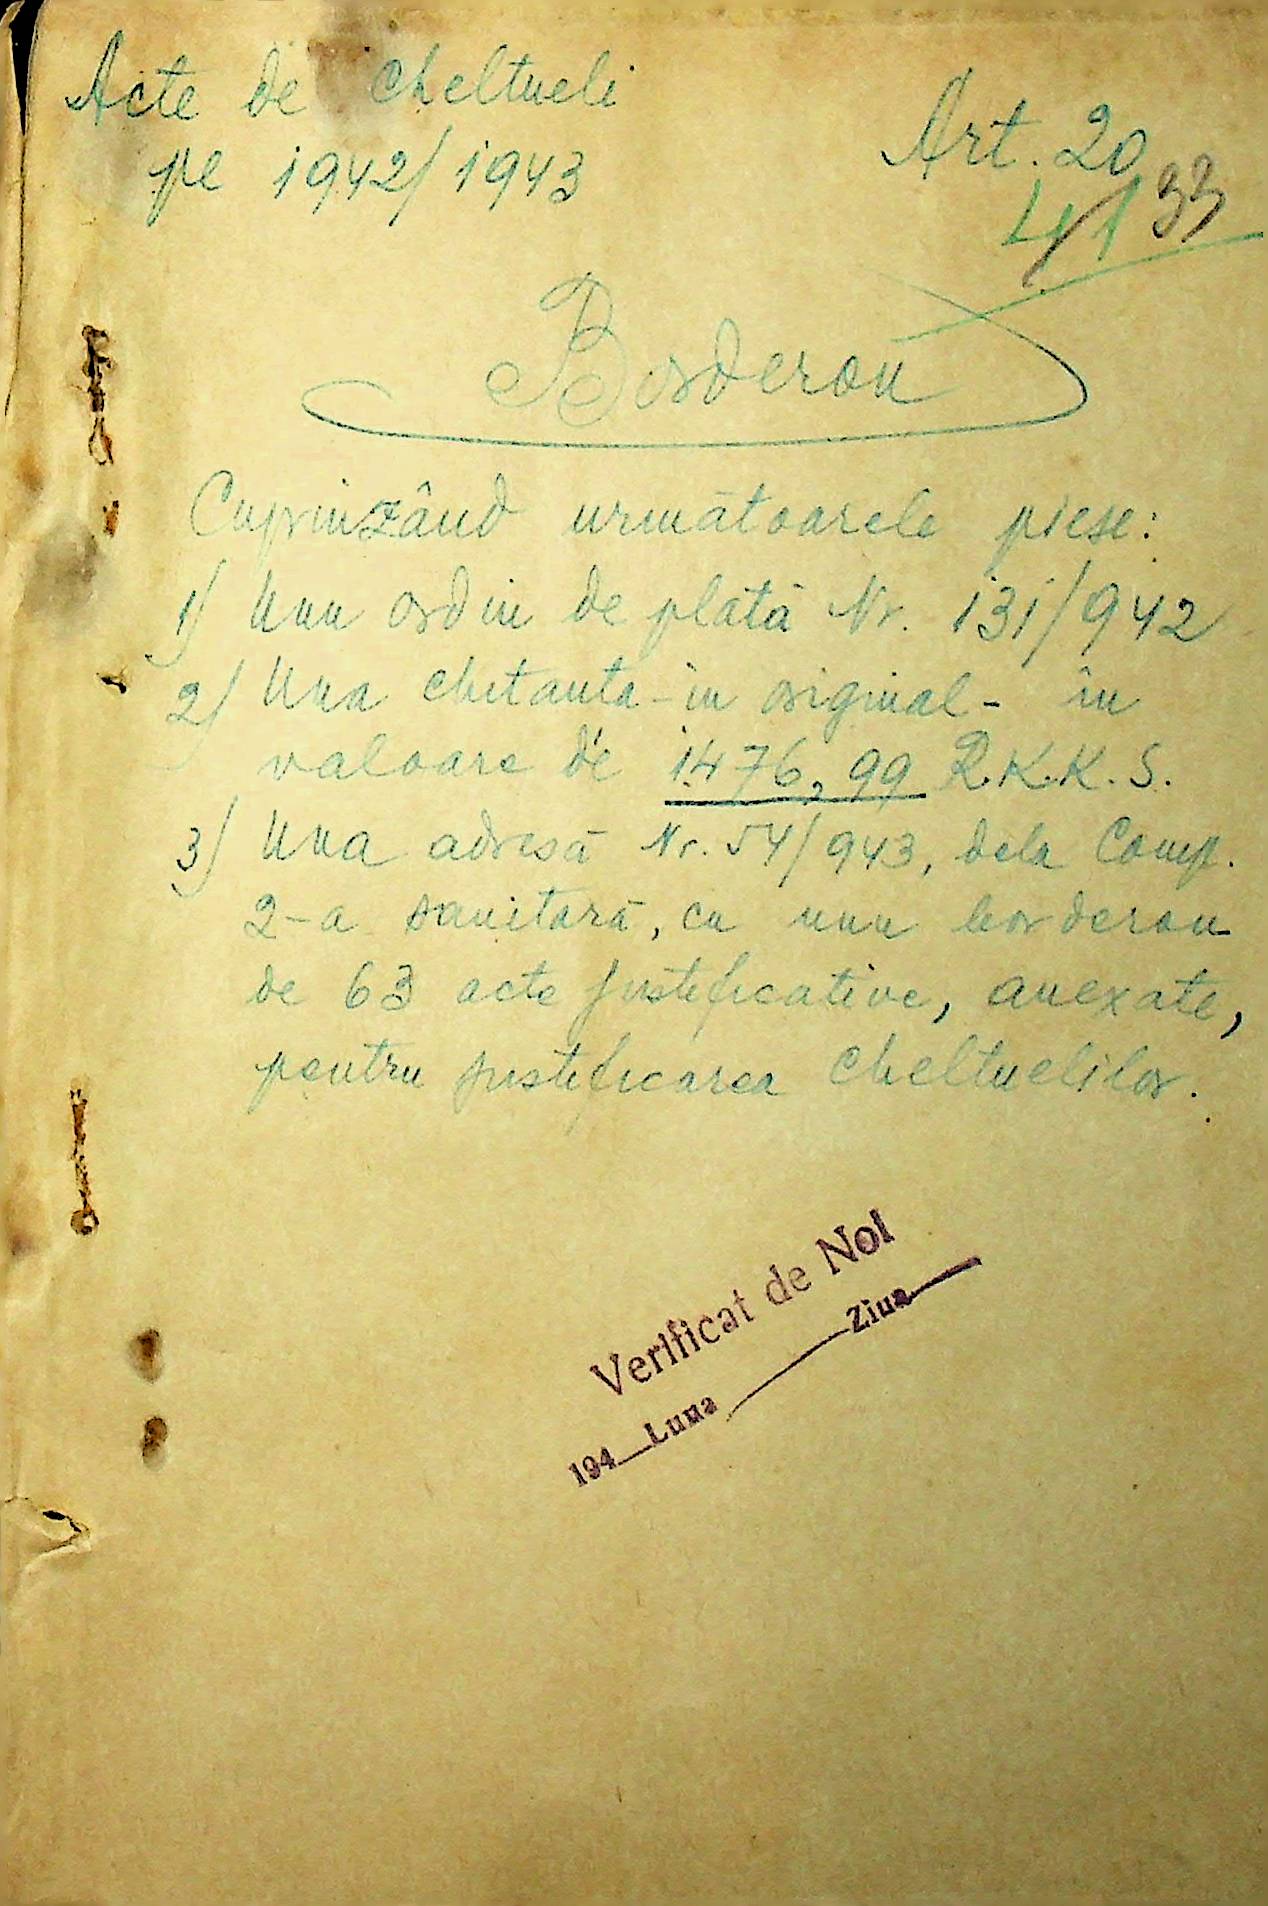 Acte de cheltueli
pe 1942/1943
Art. 20
41 33
Borderou
Cuprinzând următoarele piese:
1) Unu ordin de plată Nr. 131/942
2) Una chitanta - in original - în
valoare de 1476,99 R.K.K.S.
3) Una adresă Nr. 54/943, dela Comp.
2-a sanitară, cu unu borderou
de 63 acte justificative, anexate,
pentru justificarea cheltuelilor.
Verificat de Noi
194 Luna Ziua